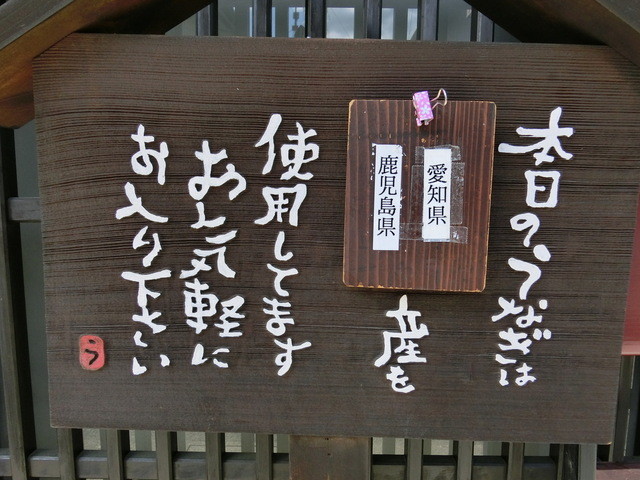 本日のうなぎは
愛知県
鹿児島県
産を
使用してます
お気軽に
お入り下さい
う